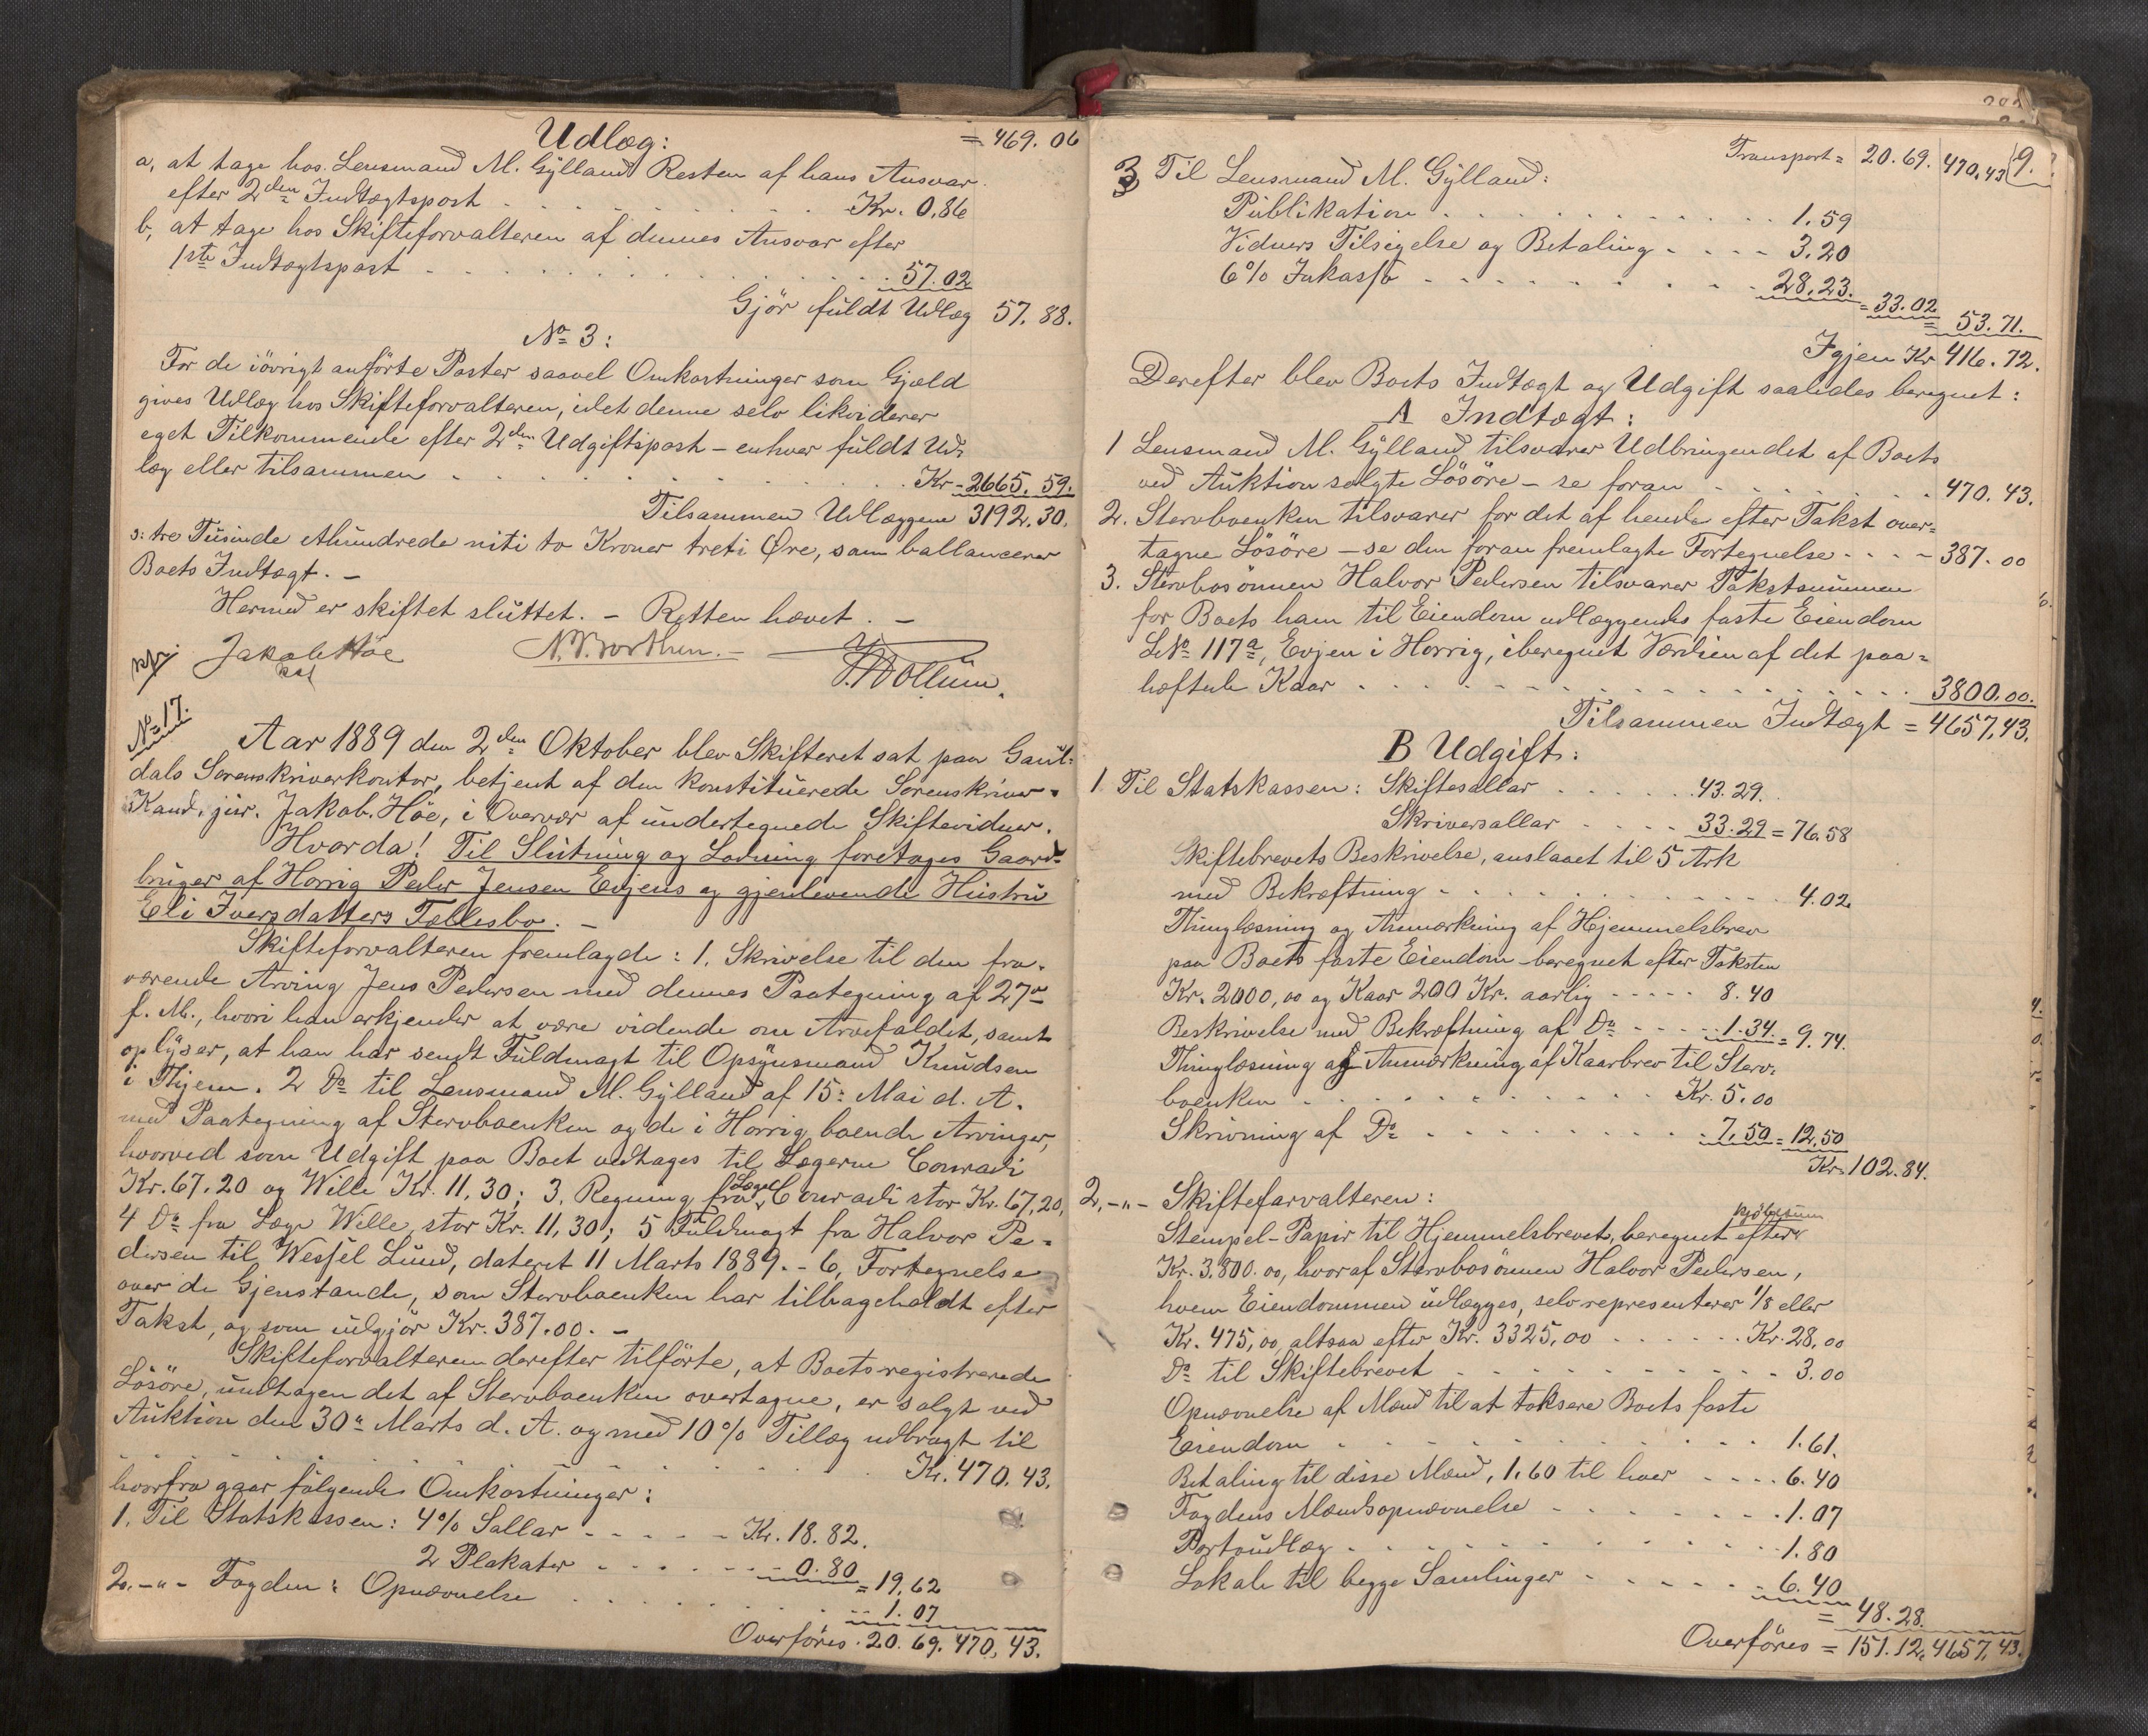 Udlæg: = 469.06
a, at tage hos Lensmand M. Gylland Resten af hans Ansvar
efter 2den Indtægtspost . . . Kr. 0.86
b, at tage hos Skifteforvalteren af dennes Ansvar efter
1ste Indtægtspost . . . 57.02
Gjör fuldt Udlæg 57.88.
No 3:
For de iövrigt anförte Poster saavel Omkostninger som Gjæld
gives Udlæg hos Skifteforvalteren, idet denne selv likviderer
eget Tilkommende efter 2den Udgiftspost – enhver fuldt Ud-
læg eller tilsammen . . . Kr. 2665.59.
Tilsammen Udlæggene 3192.30.
ɔ: tre Tusinde ethundrede niti to Kroner treti Øre, som ballancerer
Boets Indtægt. –
Hermed er skiftet sluttet. – Retten hævet. –
Jakob Höe
No 17.
Aar 1889 den 2den Oktober blev Skifteret sat paa Gaul-
dals Sorenskriverkontor, betjent af den konstituerede Sorenskriver
Kand. jur. Jakob Höe, i Overvær af undertegnede Skiftevidner.
Hvorda! Til Slutning og Lodning foretages Gaard-
bruger af Horrig Peder Jensen Evjens og gjenlevende Hustru
Eli Iversdatters Fællesbo. –
Skifteforvalteren fremlagde: 1. Skrivelse til den fra-
værende Arving Jens Pedersen med dennes Paategning af 27de
f. M., hvori han erkjender at være vidende om Arvefaldet, samt
oplyser, at han har sendt Fuldmagt til Opsynsmand Knudsen
i Thjem. 2 Do til Lensmand M. Gylland af 15: Mai d. A.
med Paategning af Stervboenken og de i Horrig boende Arvinger,
hvorved som Udgift paa Boet vedtages til Lægerne Conradi
Kr. 67.20 og Wille Kr. 11.30; 3, Regning fra Læge Conradi stor Kr. 67,20,
4 Do fra Læge Wille, stor Kr. 11,30; 5 Fuldmagt fra Halvor Pe-
dersen til Wessel Lund, dateret 11 Marts 1889. – 6, Fortegnelse
over de Gjenstande, som Stervboenken har tilbageholdt efter
Takst, og som udgjör Kr. 387.00. –
Skifteforvalteren derefter tilförte, at Boets registrerede
Lösöre, undtagen det af Stervboenken overtagne, er solgt ved
Auktion den 30te Marts d. A. og med 10% Tillæg udbragt til
. . . Kr. 470.43.
hvorfra gaar fölgende Omkostninger:
1. Til Statskassen: 4% Sallar . . . Kr. 18.82.
2 Plakater . . . 0.80 = 19.62
2. -"- Fogden: Opnævnelse . . . 1.07
Overföres. 20.69. 470,43.
Transport = 20.69. 470.43 9.
3 Til Lensmand M. Gylland:
Publikation . . . 1.59
Vidners Tilsigelse og Betaling . . . 3.20
6% Inkasso . . . 28.23. = 33.02
= 53.71.
Igjen Kr 416.72.
Derefter blev Boets Indtægt og Udgift saaledes beregnet:
A Indtægt:
1 Lensmand M. Gylland tilsvarer Udbringendet af Boets
ved Auktion solgte Lösöre – se foran . . . 470.43.
2. Stervboenken tilsvarer for det af hende efter Takst over-
tagne Lösöre – se den foran fremlagte Fortegnelse . . . 387.00
3. Stervbosönnen Halvor Pedersen tilsvarer Takstsummen
for Boets ham til Eiendom udlæggendes faste Eiendom
LNo 117a, Evjen i Horrig, iberegnet Værdien af det paa-
hæftede Kaar . . . 3800.00.
Tilsammen Indtægt = 4657,43.
B Udgift:
1. Til Statskassen: Skiftesallar . . . 43.29.
Skriversallar . . . 33.29 = 76.58
Skiftebrevets Beskrivelse, anslaaet til 5 Ark
med Bekræftning . . . 4.02
Thinglæsning og Anmærkning af Hjemmelsbrev
paa Boets faste Eiendom – beregnet efter Taksten
Kr. 2000,00 og Kaar 200 Kr. aarlig . . . 8.40
Beskrivelse med Bekræftning af Do . . . 1.34. = 9.74.
Thinglæsning og Anmærkning af Kaarbrev til Sterv-
boenken . . . Kr. 5.00
Skrivning af Do . . . 7.50 = 12.50
Kr. 102.84.
2, -"- Skifteforvalteren:
Stempel-Papir til Hjemmelsbrevet, beregnet efter kjöbesum
Kr. 3.800.00, hvoraf Stervbosönnen Halvor Pedersen,
hvem Eiendommen udlægges, selv representerer 1/8 eller
Kr. 475,00, altsaa efter Kr. 3325,00 . . . Kr. 28,00
Do til Skiftebrevet . . . 3.00
Opnævnelse af Mænd til at taksere Boets faste
Eiendom . . . 1.61.
Betaling til disse Mænd, 1.60 til hver . . . 6.40
Fogdens Mændsopnævnelse . . . 1.07
Portoudlæg . . . 1.80
Lokale til begge Samlinger . . . 6.40
= 48.28.
Overföres = 151.12. 4657,43.